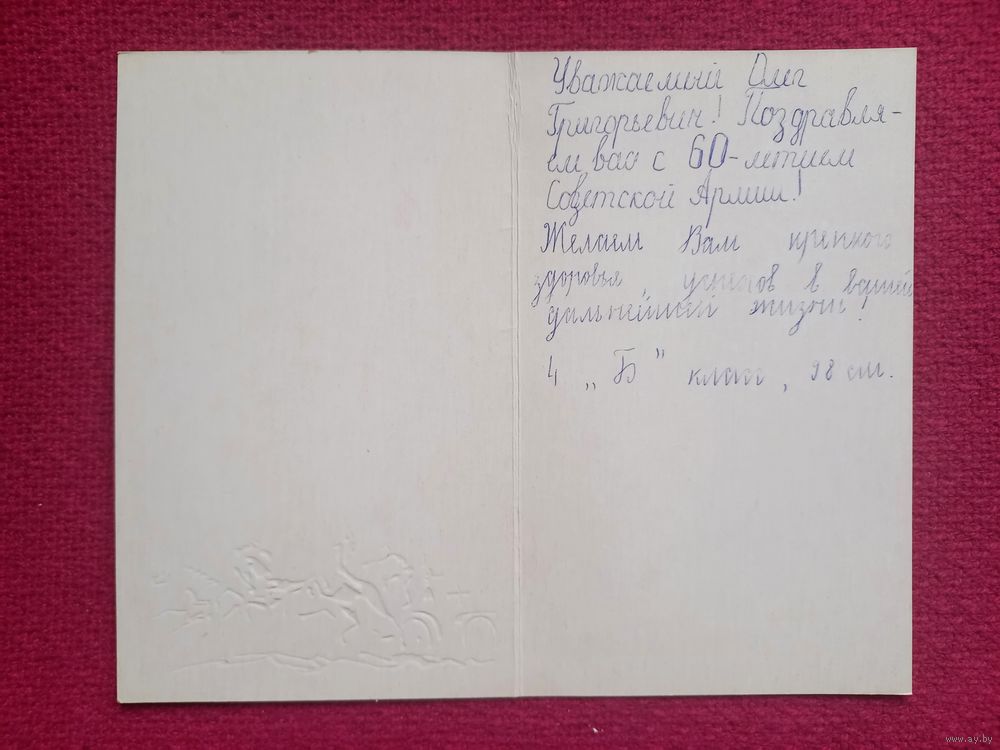 Уважаемый Олег
Григорьевич! Поздравля-
ем вас с 60-летием
Советской Армии!
Желаем Вам крепкого
здоровья, успехов в вашей
дальнейшей жизни!
4 „Б” класс,
www.ay.by